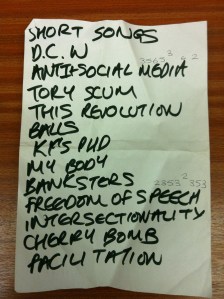 SHORT SONGS
D.C.W
ANTI-SOCIAL MEDIA
TORY SCUM
THIS REVOLUTION
BALLS
KF'S PHD
MY BODY
BANKSTERS
FREEDOM OF SPEECH
INTERSECTIONALITY
CHERRY BOMB
FACILITATION